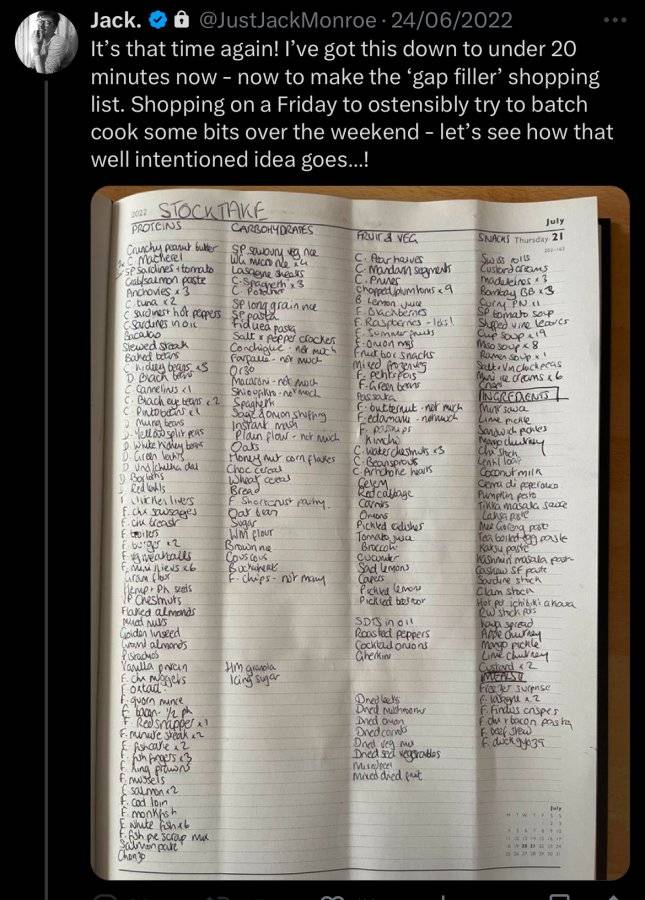 Jack. @JustJackMonroe · 24/06/2022
It's that time again! I've got this down to under 20
minutes now - now to make the 'gap filler' shopping
list. Shopping on a Friday to ostensibly try to batch
cook some bits over the weekend - let's see how that
well intentioned idea goes...!
2022 STOCKTAKE
July
Thursday 21
PROTEINS
Crunchy peanut butter
C. Mackerel
SP Sardines + tomato
Crab/salmon paste
Anchovies x 3
C. tuna x 2
C. sardines hot peppers
C. Sardines in oil
Bacalao
Stewed steak
Baked beans
C. Kidney beans x3
D. Black beans
C. Cannelinis x1
C. Black eye beans x 2
C. Pinto beans x1
D. Mung beans
D. Yellow split peas
D. White kidney beans
D. Green lentils
D. Urid/chulka dal
D. Borlotti
D. Red lentils
F. chicken livers
F. chx sausages
F. chx breast
F. broilers
F. burger x2
F. vg meatballs
F. mini kievs x6
Gram flour
Hemp + Pk seeds
VP Chestnuts
Flaked almonds
Mixed nuts
Golden linseed
Ground almonds
Pistachios
Vanilla protein
F. chx nuggets
F. oxtail
F. quorn mince
F. bacon - 1/2 pk
F. Red snapper x1
F. minute steak x2
F. fishcake x2
F. fish fingers x3
F. king prawns
F. mussels
F. salmon x2
F. cod loin
F. monkfish
F. white fish x6
F. fish pie scrap mix
Salmon pate
Chorizo
CARBOHYDRATES
SP savoury veg rice
WG micro rice x4
Lasagne sheets
C. Spaghetti x3
C. Potatoes
SP long grain rice
SP pasta
Fideua pasta
Salt + pepper crackers
Conchiglie - not much
Farfalle - not much
Orzo
Macaroni - not much
- not much
Spaghetti
Sage & onion stuffing
Instant mash
Plain flour - not much
Oats
Honey nut cornflakes
Choc cereal
Wheat cereal
Bread
F. Shortcrust pastry
Oat bran
Sugar
WM flour
Brown rice
Couscous
Buckwheat
F. chips - not many
HM granola
Icing sugar
FRUIT & VEG
C. Pear halves
C. Mandarin segments
C. Prunes
Chopped plum toms x 9
B. Lemon juice
F. Blackberries
F. Raspberries - lots!
F. Summer fruits
F. Onion rings
Fruit box snacks
Mixed
F. Petits pois
F. Green beans
Passata
F. butternut - not much
F. edamame - not much
F.
Kimchi
C. Water chestnuts x3
C. Beansprouts
C. Artichoke hearts
Celery
Red cabbage
Carrots
Onions
Pickled radishes
Tomato juice
Broccoli
Cucumber
Sad lemons
Capers
Pickled lemon
Pickled beetroot
SDTs in oil
Roasted peppers
Cocktail onions
Gherkins
Dried leeks
Dried mushrooms
Dried onion
Dried carrots
Dried veg mix
Dried sea vegetables
Mixed peel
Mixed dried fruit
SNACKS
Swiss rolls
Custard creams
Madeleines x 3
Bombay BB x 3
Curry PN
SP tomato soup
Stuffed vine leaves
Cup soup x 19
Miso soup x 8
Ramen soup x 1
Salt + vin chickpeas
Mini ice creams x 6
INGREDIENTS
Mint sauce
Lime pickle
Sandwich pickle
Mango chutney
Chx stock
Coconut milk
Crema di peperoncino
Pumpkin pesto
Tikka masala sauce
Laksa paste
Mee Goreng paste
Tea boiled egg paste
Katsu paste
Kashmiri masala paste
Cashew SF paste
Sardine stock
Clam stock
Hot pot
stock pots
spread
Apple chutney
Mango pickle
Lime chutney
Custard x 2
MEALS
Freezer surprise
F. lasagne x 2
F. Findus crispies
F. chx + bacon pasta
F. beef stew
F. duck gyoza
July
M T W T F S S